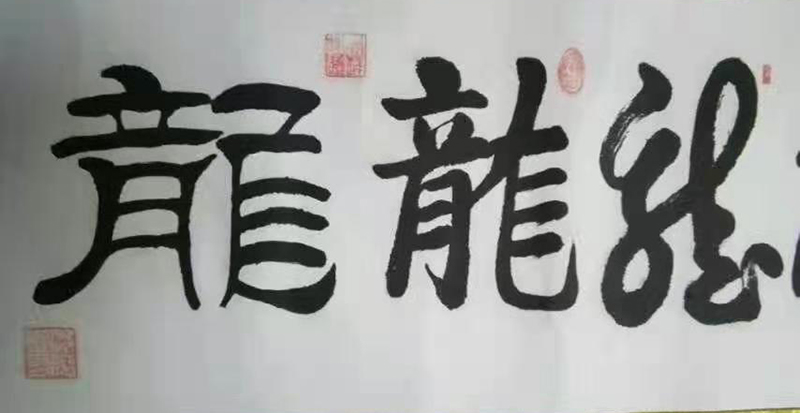 龍龍龍